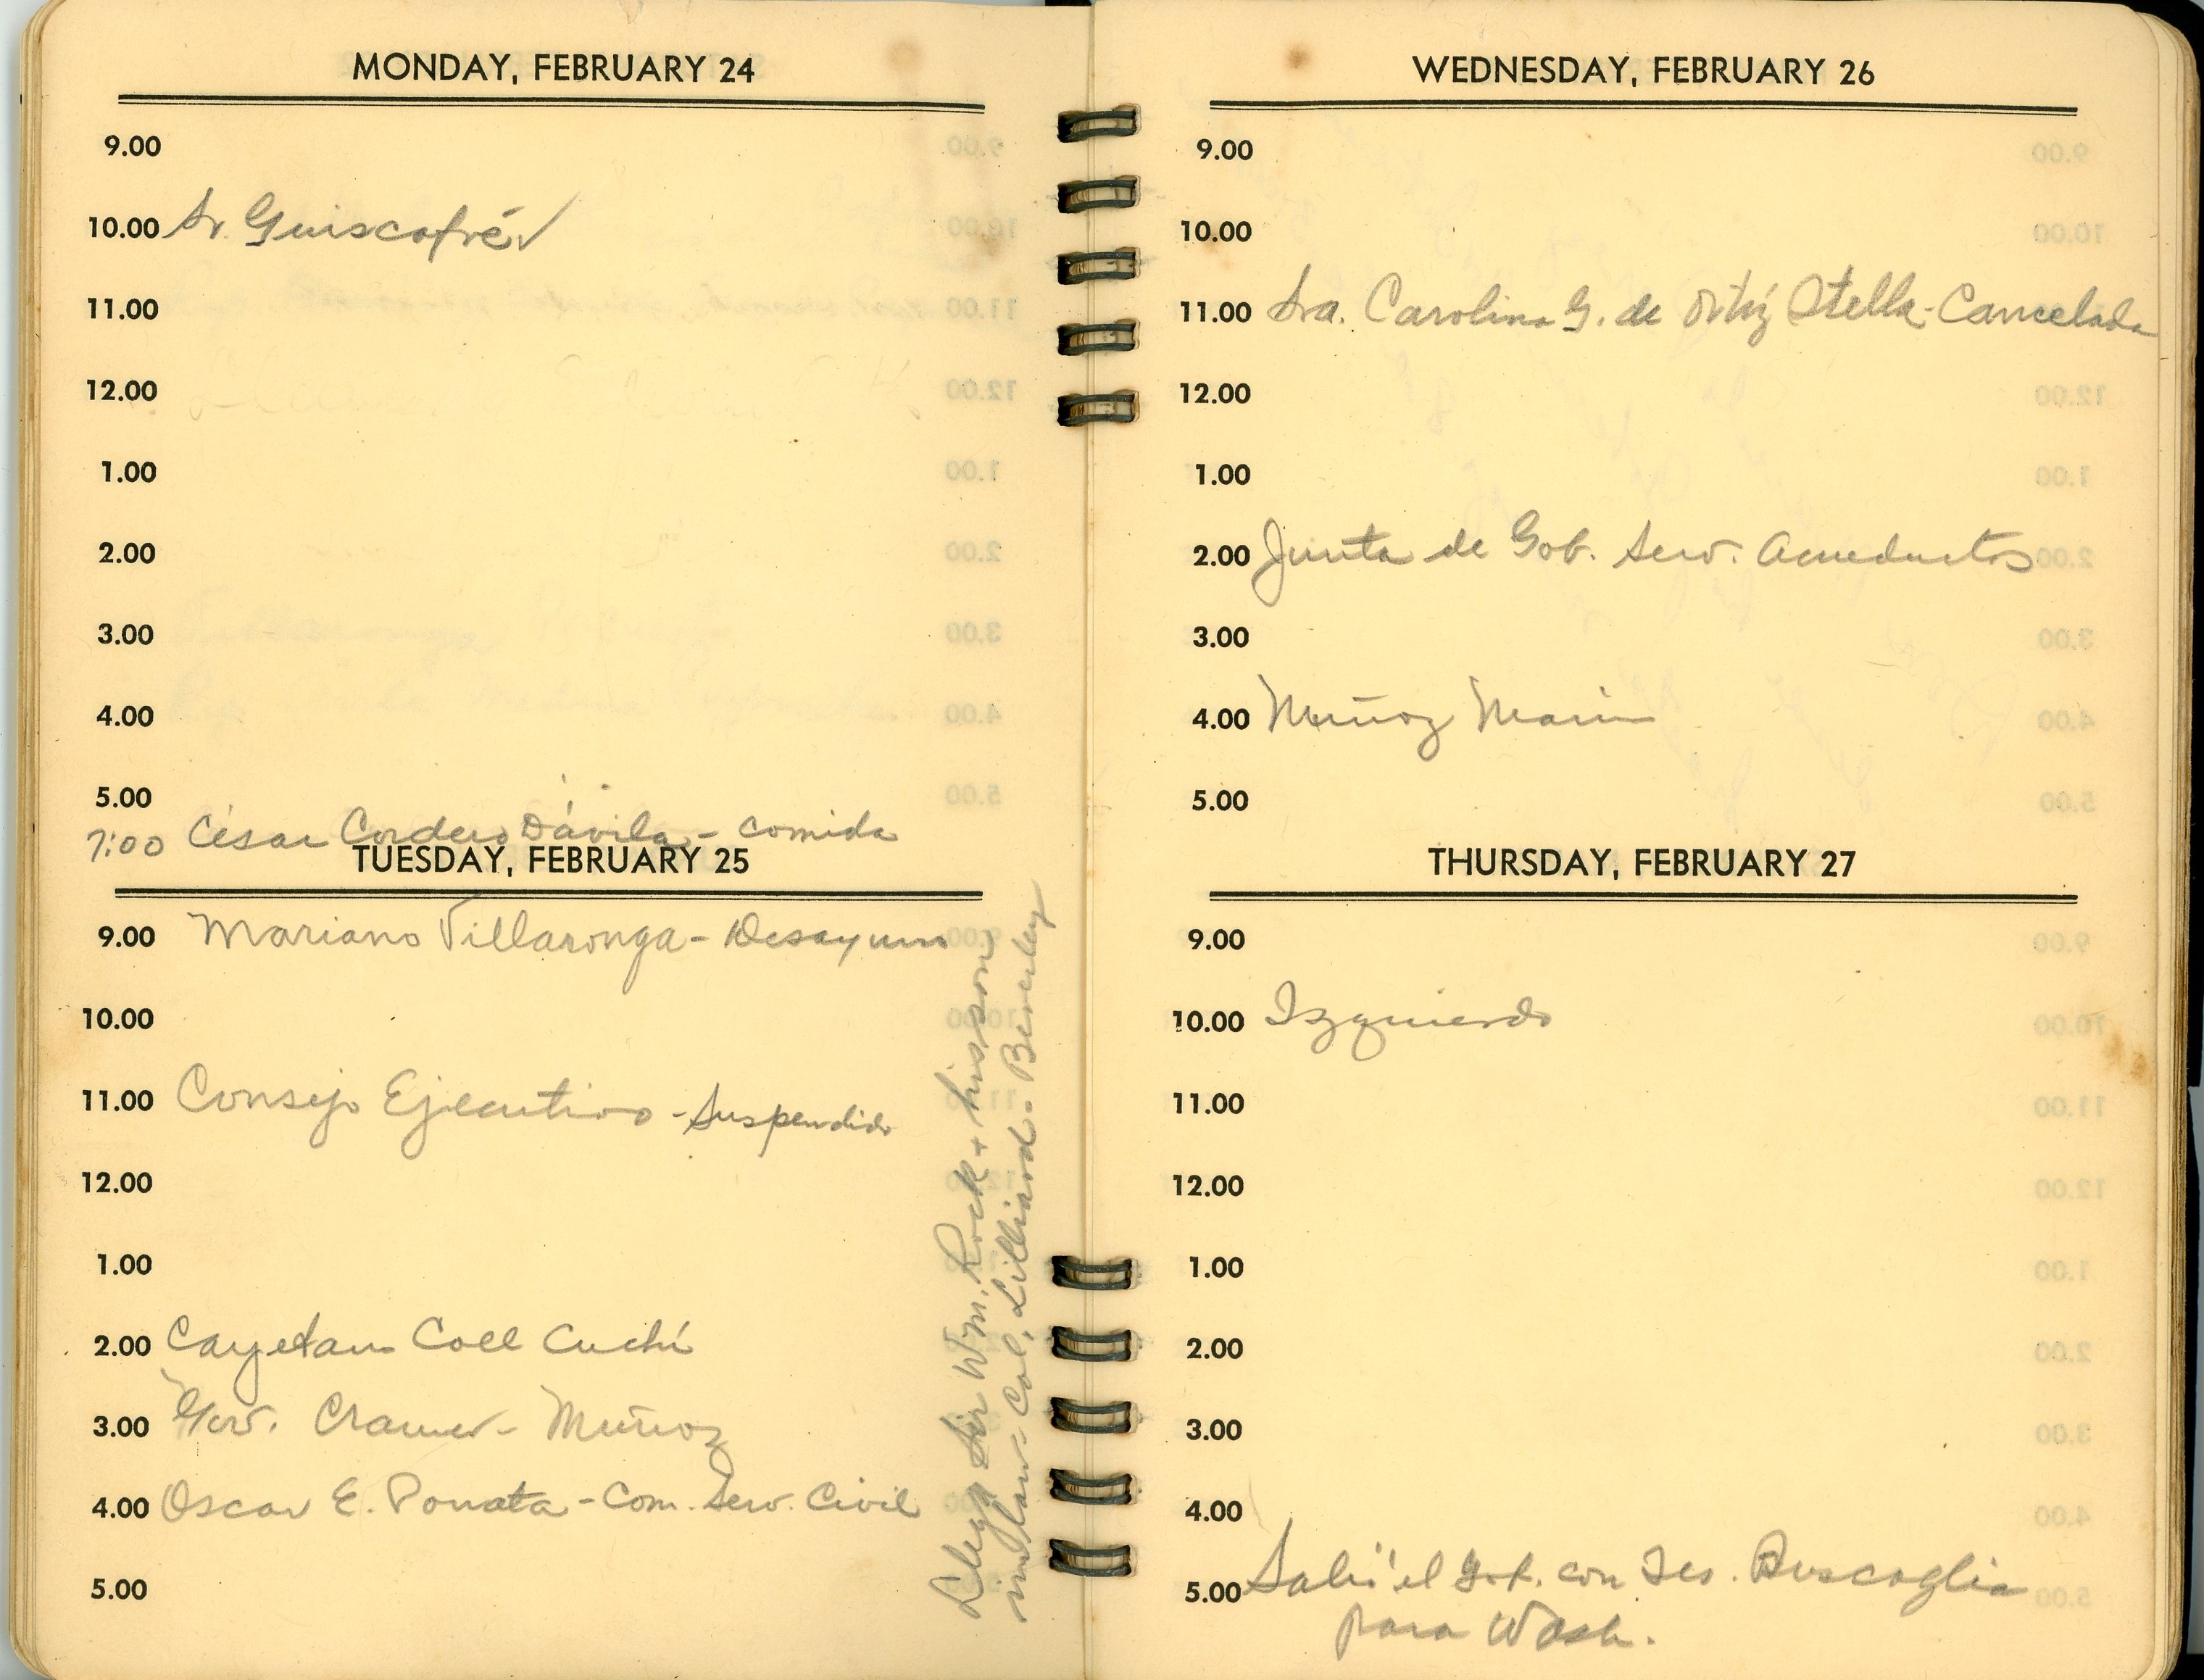 MONDAY, FEBRUARY 24
9.00
10.00 Sr. Guiscafré ✓
11.00
12.00
1.00
2.00
3.00
4.00
5.00
7:00 César Cordero Dávila - comida
TUESDAY, FEBRUARY 25
9.00 Mariano Villaronga - Desayuno
10.00
11.00 Consejo Ejecutivo - Suspendido
12.00
1.00
2.00 Cayetano Coll Cuchí
3.00 Gov. Cramer - Muñoz
4.00 Oscar E. Porrata - Com. Serv. Civil
5.00
Llega Sir Wm. Rock + his son
in law - Col. Lilliard. Beverley
WEDNESDAY, FEBRUARY 26
9.00
10.00
11.00 Sra. Carolina G. de Ortiz Stella - Cancelada
12.00
1.00
2.00 Junta de Gob. Serv. Acueductos
3.00
4.00 Muñoz Marin
5.00
THURSDAY, FEBRUARY 27
9.00
10.00 Izquierdo
11.00
12.00
1.00
2.00
3.00
4.00
5.00 Salió el Gob. con Tes. Buscaglia
para Wash.